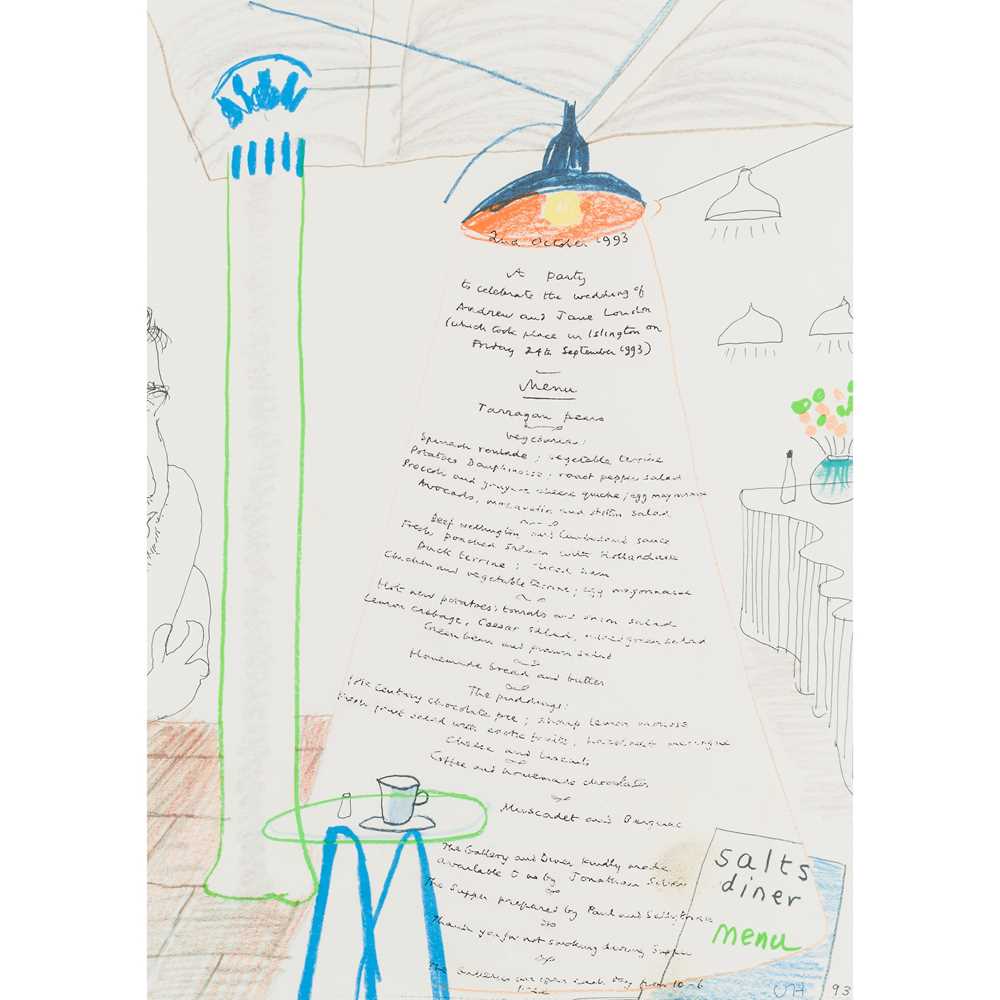 2nd October 1993
A party
to celebrate the wedding of
Andrew and Jane London
(which took place in Islington on
Friday 24th September 1993)
Menu
Tarragon pears
Vegetarian:
Spinach roulade; vegetable terrine
Potatoes Dauphinoise; roast pepper salad
Broccoli and gruyere cheese quiche; egg mayonnaise
Avocado, mozzarella and stilton salad
Beef wellington and Cumberland sauce
Fresh poached salmon with Hollandaise
Duck terrine; sliced ham
Chicken and vegetable terrine; egg mayonnaise
Hot new potatoes; tomato and onion salad
Lemon cabbage, Caesar salad, mixed green salad
Green bean and prawn salad
Homemade bread and butter
The puddings:
century chocolate pie; sharp lemon mousse
Fresh fruit salad with exotic fruits, hazelnut meringue
Cheese and biscuits
Coffee and homemade chocolates
Muscadet and Bergerac
The Gallery and Diner kindly made
available to us by Jonathan Silver
The Supper prepared by Paul and
Thank you for not smoking during supper
The Galleries are open each day from 10-6
salts
diner
menu
DH 93